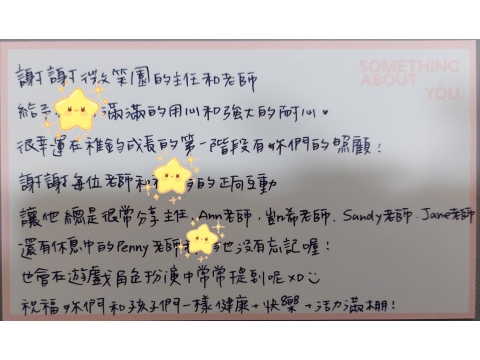 SOMETHING
ABOUT
YOU.
謝謝微笑園的主任和老師
給予 滿滿的用心和強大的耐心♥
很幸運在稚鈞成長的第一階段有妳們的照顧!
謝謝每位老師和 的正向互動
讓他總是很常分享主任、Ann老師、凱希老師、Sandy老師、Jane老師
還有休息中的Penny老師 他沒有忘記喔!
也會在遊戲角色扮演中常常提到呢xD
祝福妳們和孩子們一樣健康+快樂+活力滿棚!